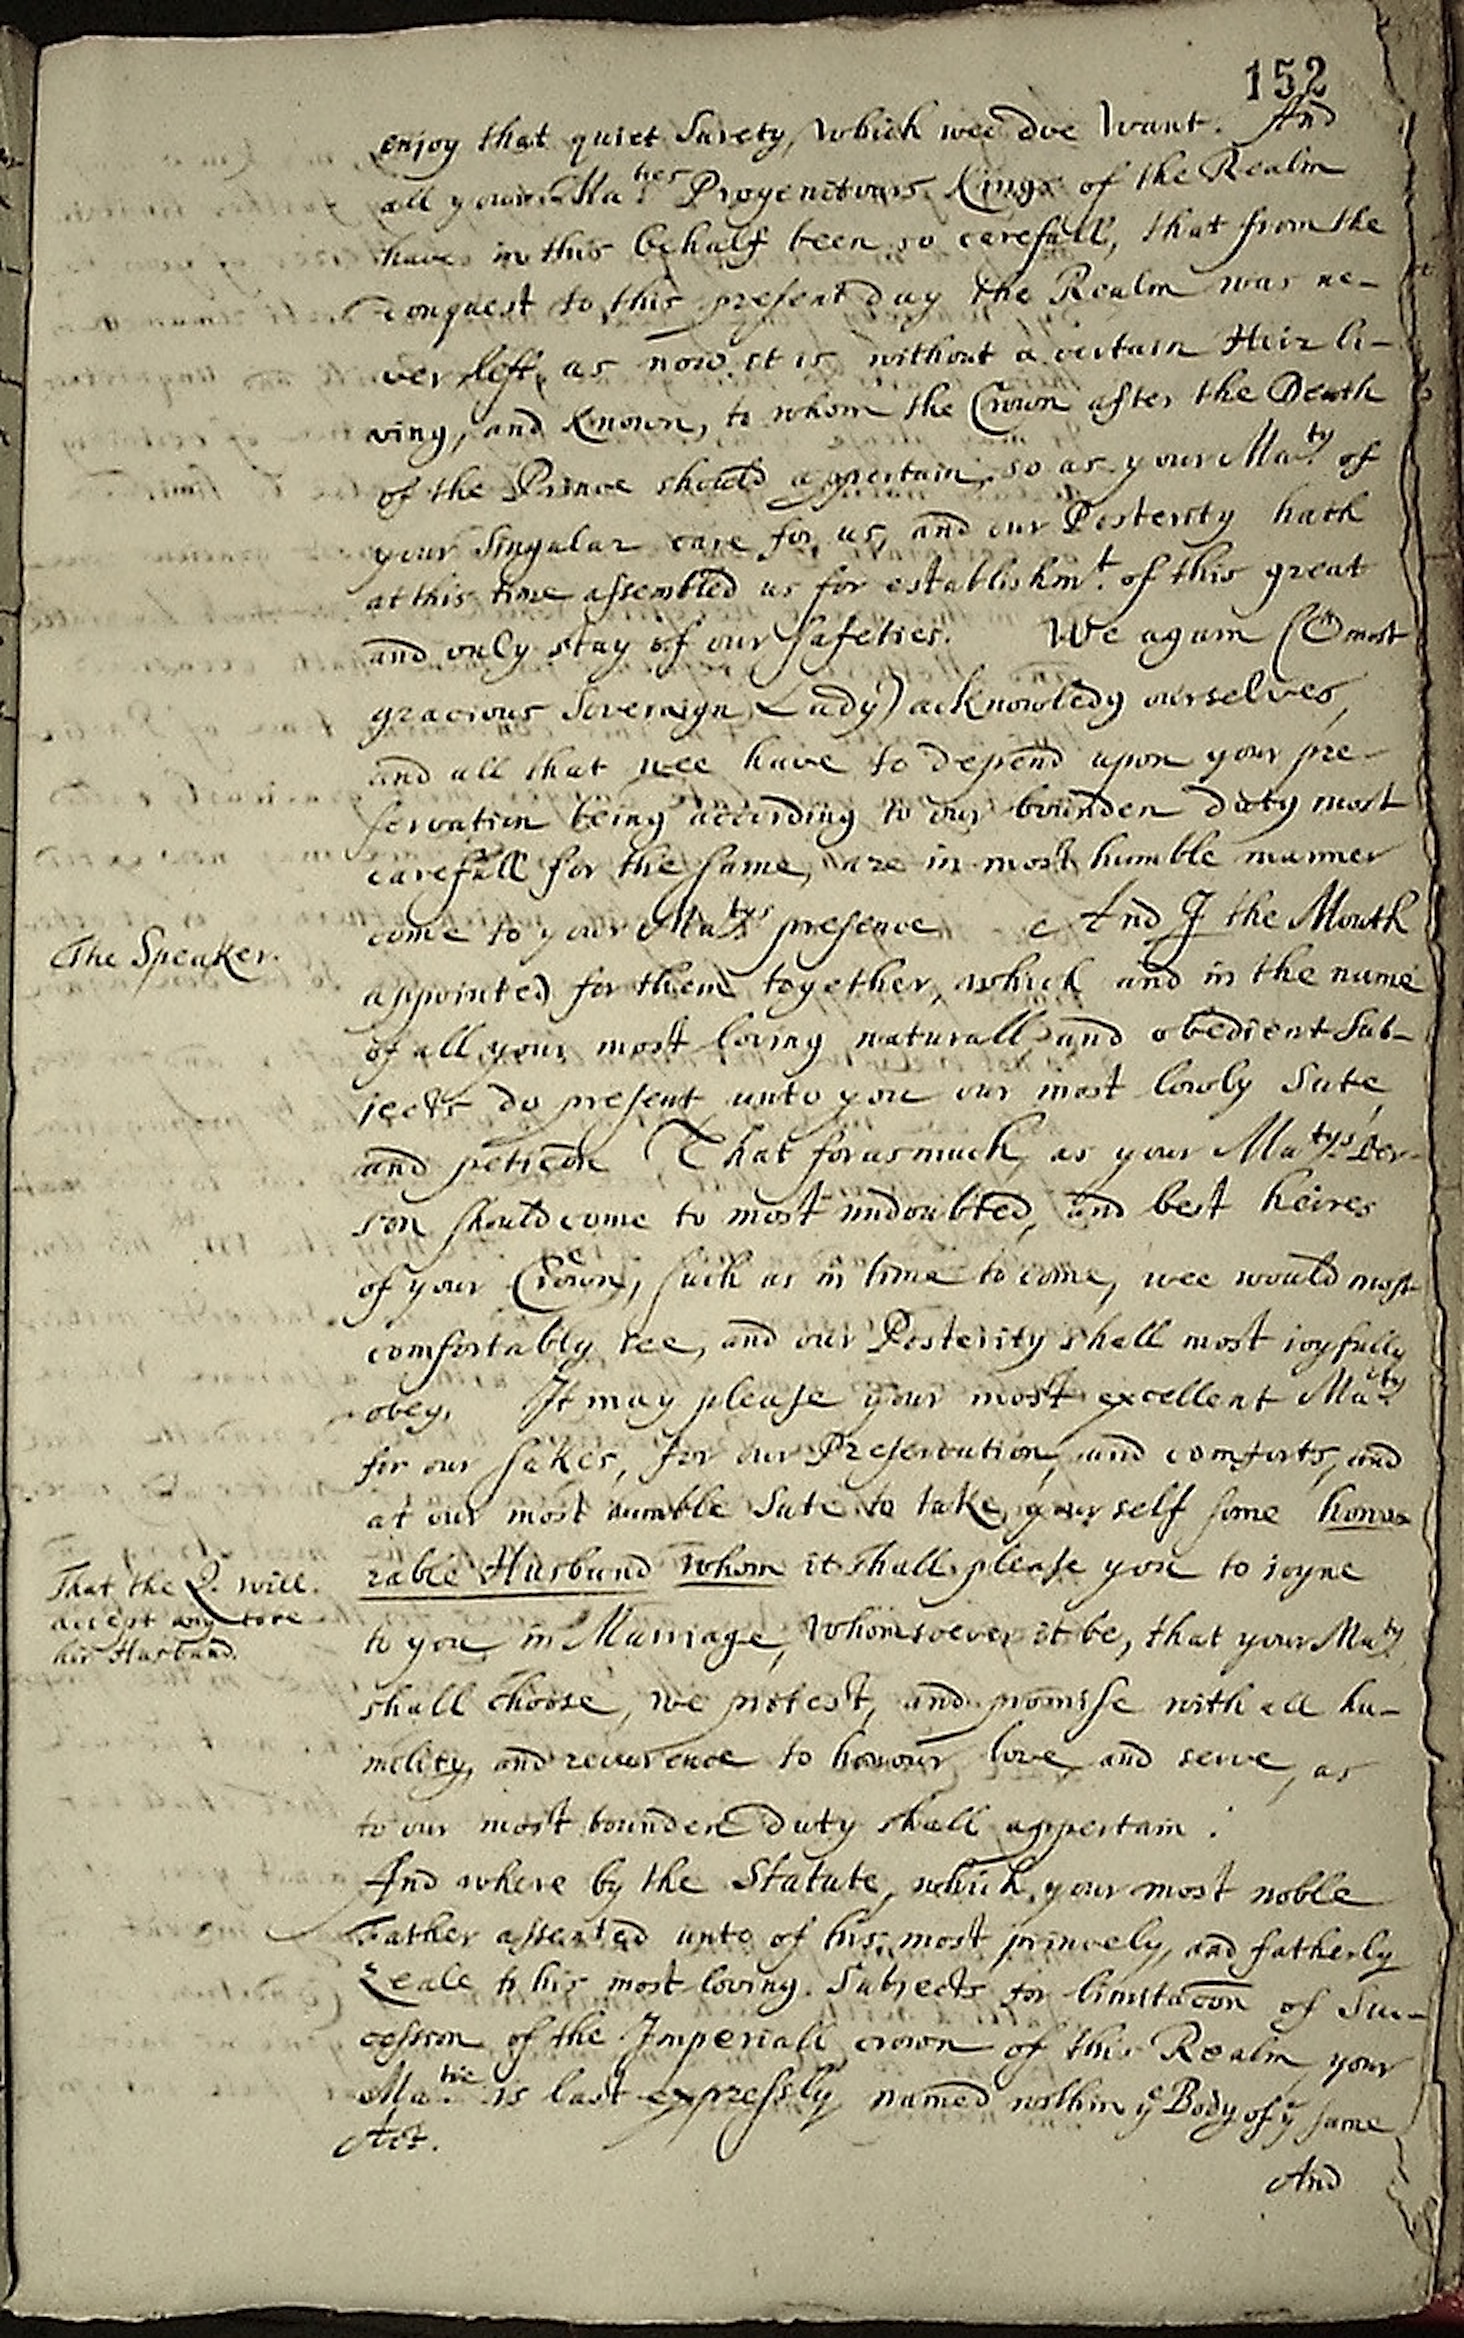 152
enjoy that quiet Surety, which wee doe want. And
all your Ma.ties Progenitours Kings of the Realm
have in this behalf been so carefull, that from the
conquest to this present day the Realm was ne-
ver left, as now it is without a certain Heir li-
ving, and known, to whom the Crown after the Death
of the Prince should appertain, so as your Ma.ty of
your Singular care for us, and our Posterity hath
at this time assembled us for establishm.t of this great
and only stay of our safeties. We again (O most
gracious Soveraign Lady) acknowledg ourselves,
and all that wee have to depend upon your pre-
servation being according to our bounden duty most
carefull for the same, are in most humble manner
come to your Ma.tys presence And I the Mouth
The Speaker.
appointed for them together, which and in the name
of all your most loving naturall and obedient Sub-
jects do present unto you our most lowly Sute,
and peticon That forasmuch, as your Ma.tys Per-
son should come to most undoubted, and best heires
of your Crown, such as in time to come, wee would most
comfortably see, and our Posterity shall most joyfully
obey, It may please your most excellent Ma.ty
for our sakes, for our Preservation, and comforts, and
at our most humble Sute to take your self some hono-
rable Husband whom it shall please you to joyne
That the Q. will
accept any to be
her Husband.
to you in Marriage, whomsoever it be, that your Ma.ty
shall choose, we protest, and promise with all hu-
mility, and reverence to honour, love, and serve, as
to our most bounden duty shall appertain.
And where by the Statute, which your most noble
Father assented unto of his most princely, and fatherly
Zeale to his most loving Subjects for limitacon of Suc-
cession of the Imperiall crown of this Realm, your
Ma.tie is last expressly named within ye Body of ye same
Act.
And